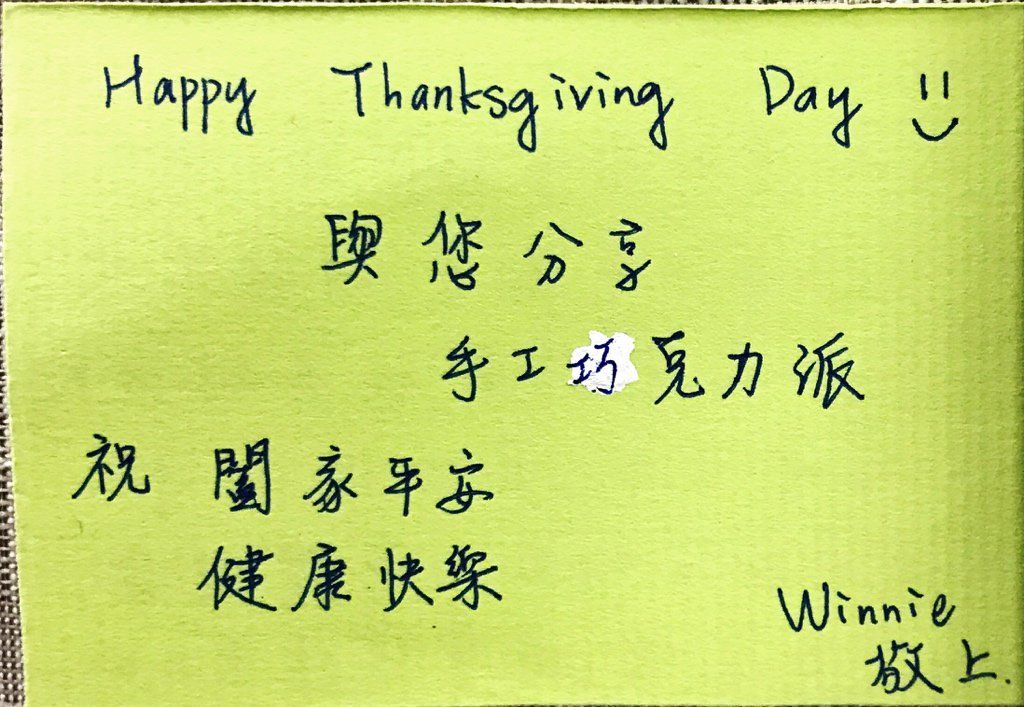 Happy Thanksgiving Day
與您分享
手工巧克力派
祝 闔家平安
健康快樂
Winnie
敬上.